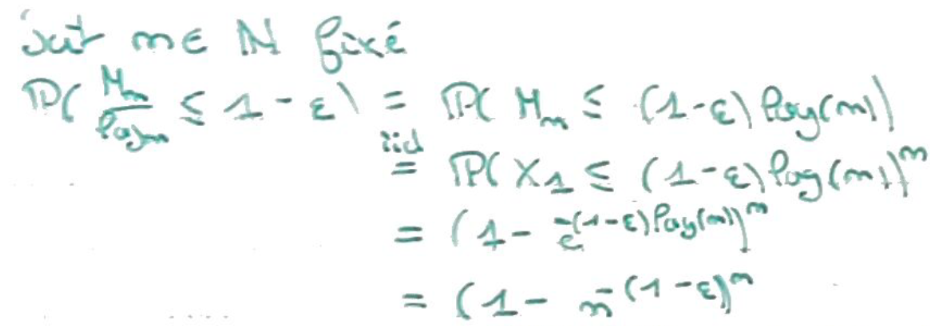 Soit n ∈ ℕ fixé
ℙ( M_n / log n ≤ 1 - ε ) = ℙ( M_n ≤ (1-ε) log(n))
iid = ℙ( X_1 ≤ (1-ε) log(n))^n
= (1 - e^{-(1-ε) log(n)})^n
= (1 - n^{-(1-ε)})^n